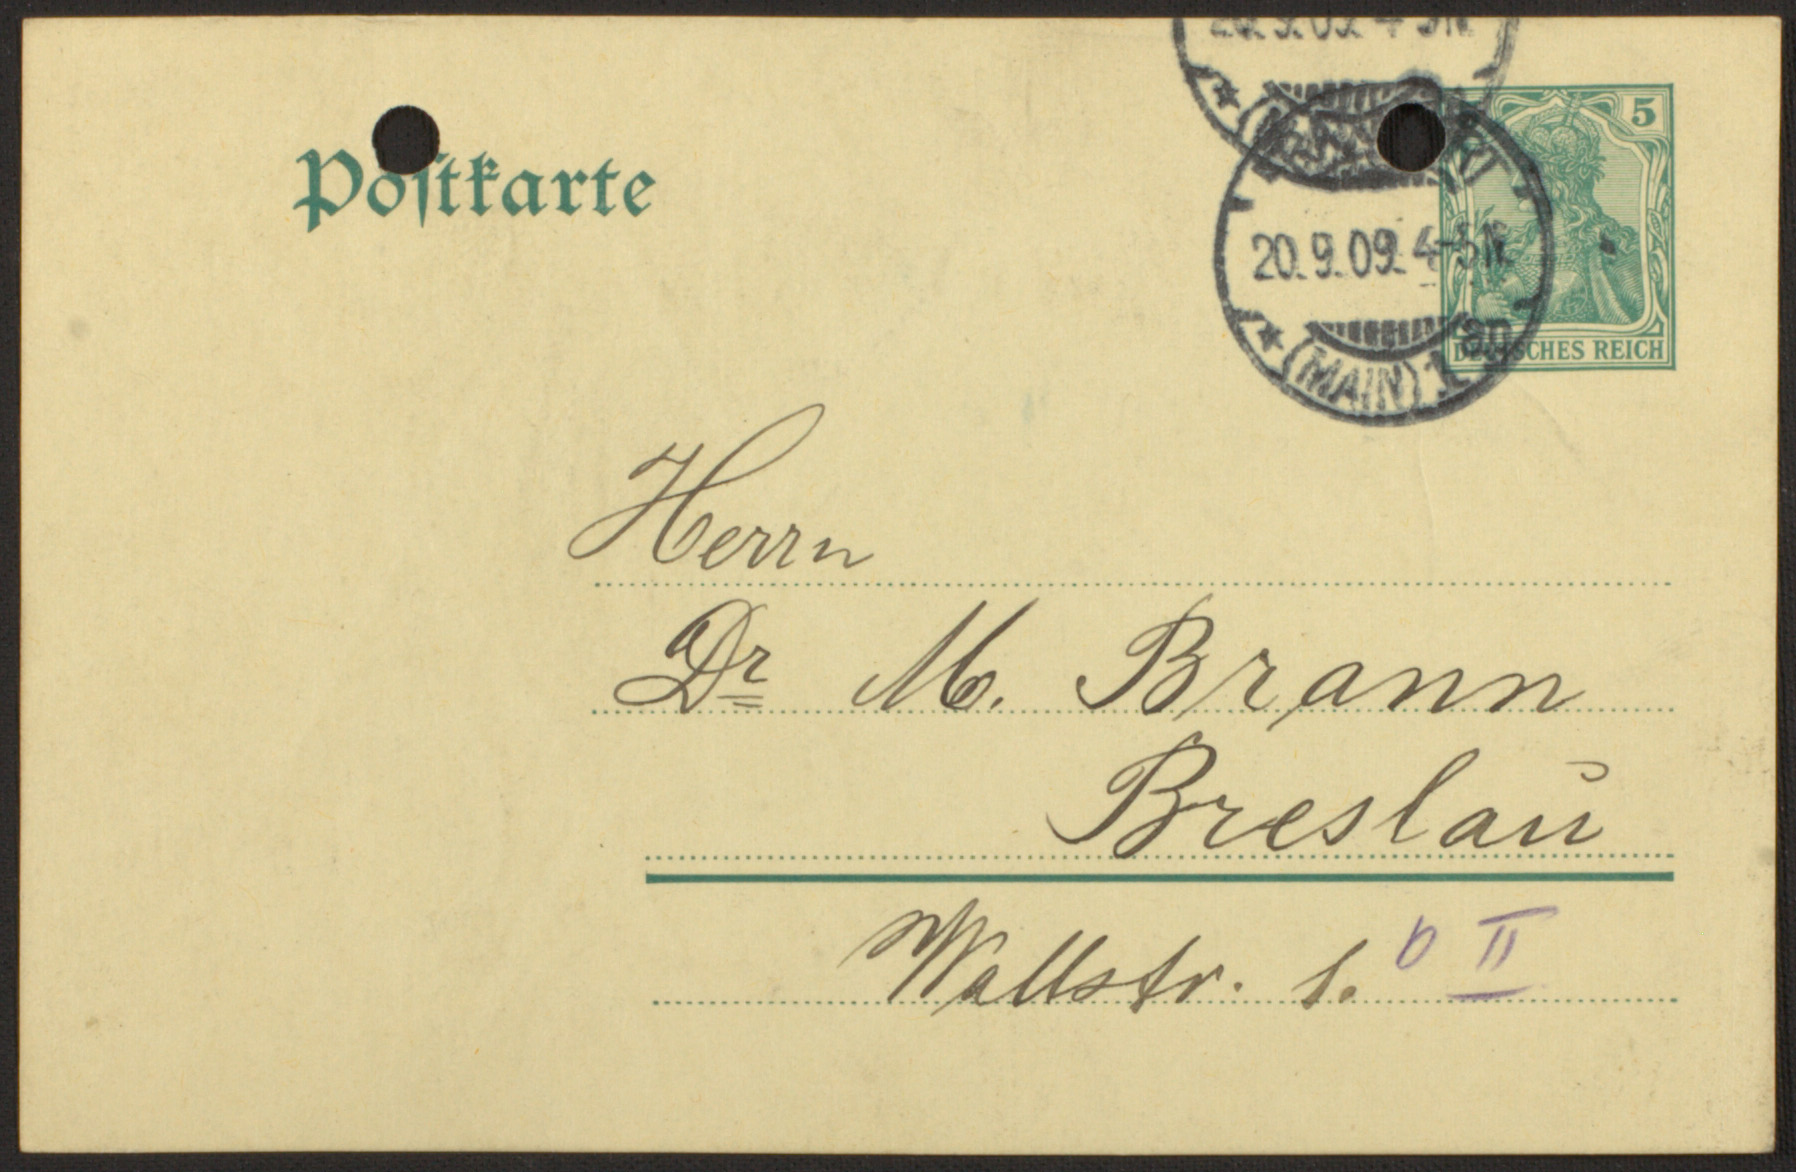 20.9.09. 4-5N.
5
Postkarte
20.9.09. 4-5N.
★ (MAIN) 1. an
DEUTSCHES REICH
Herrn
Dr M. Brann
Breslau
Wallstr. 1. b II